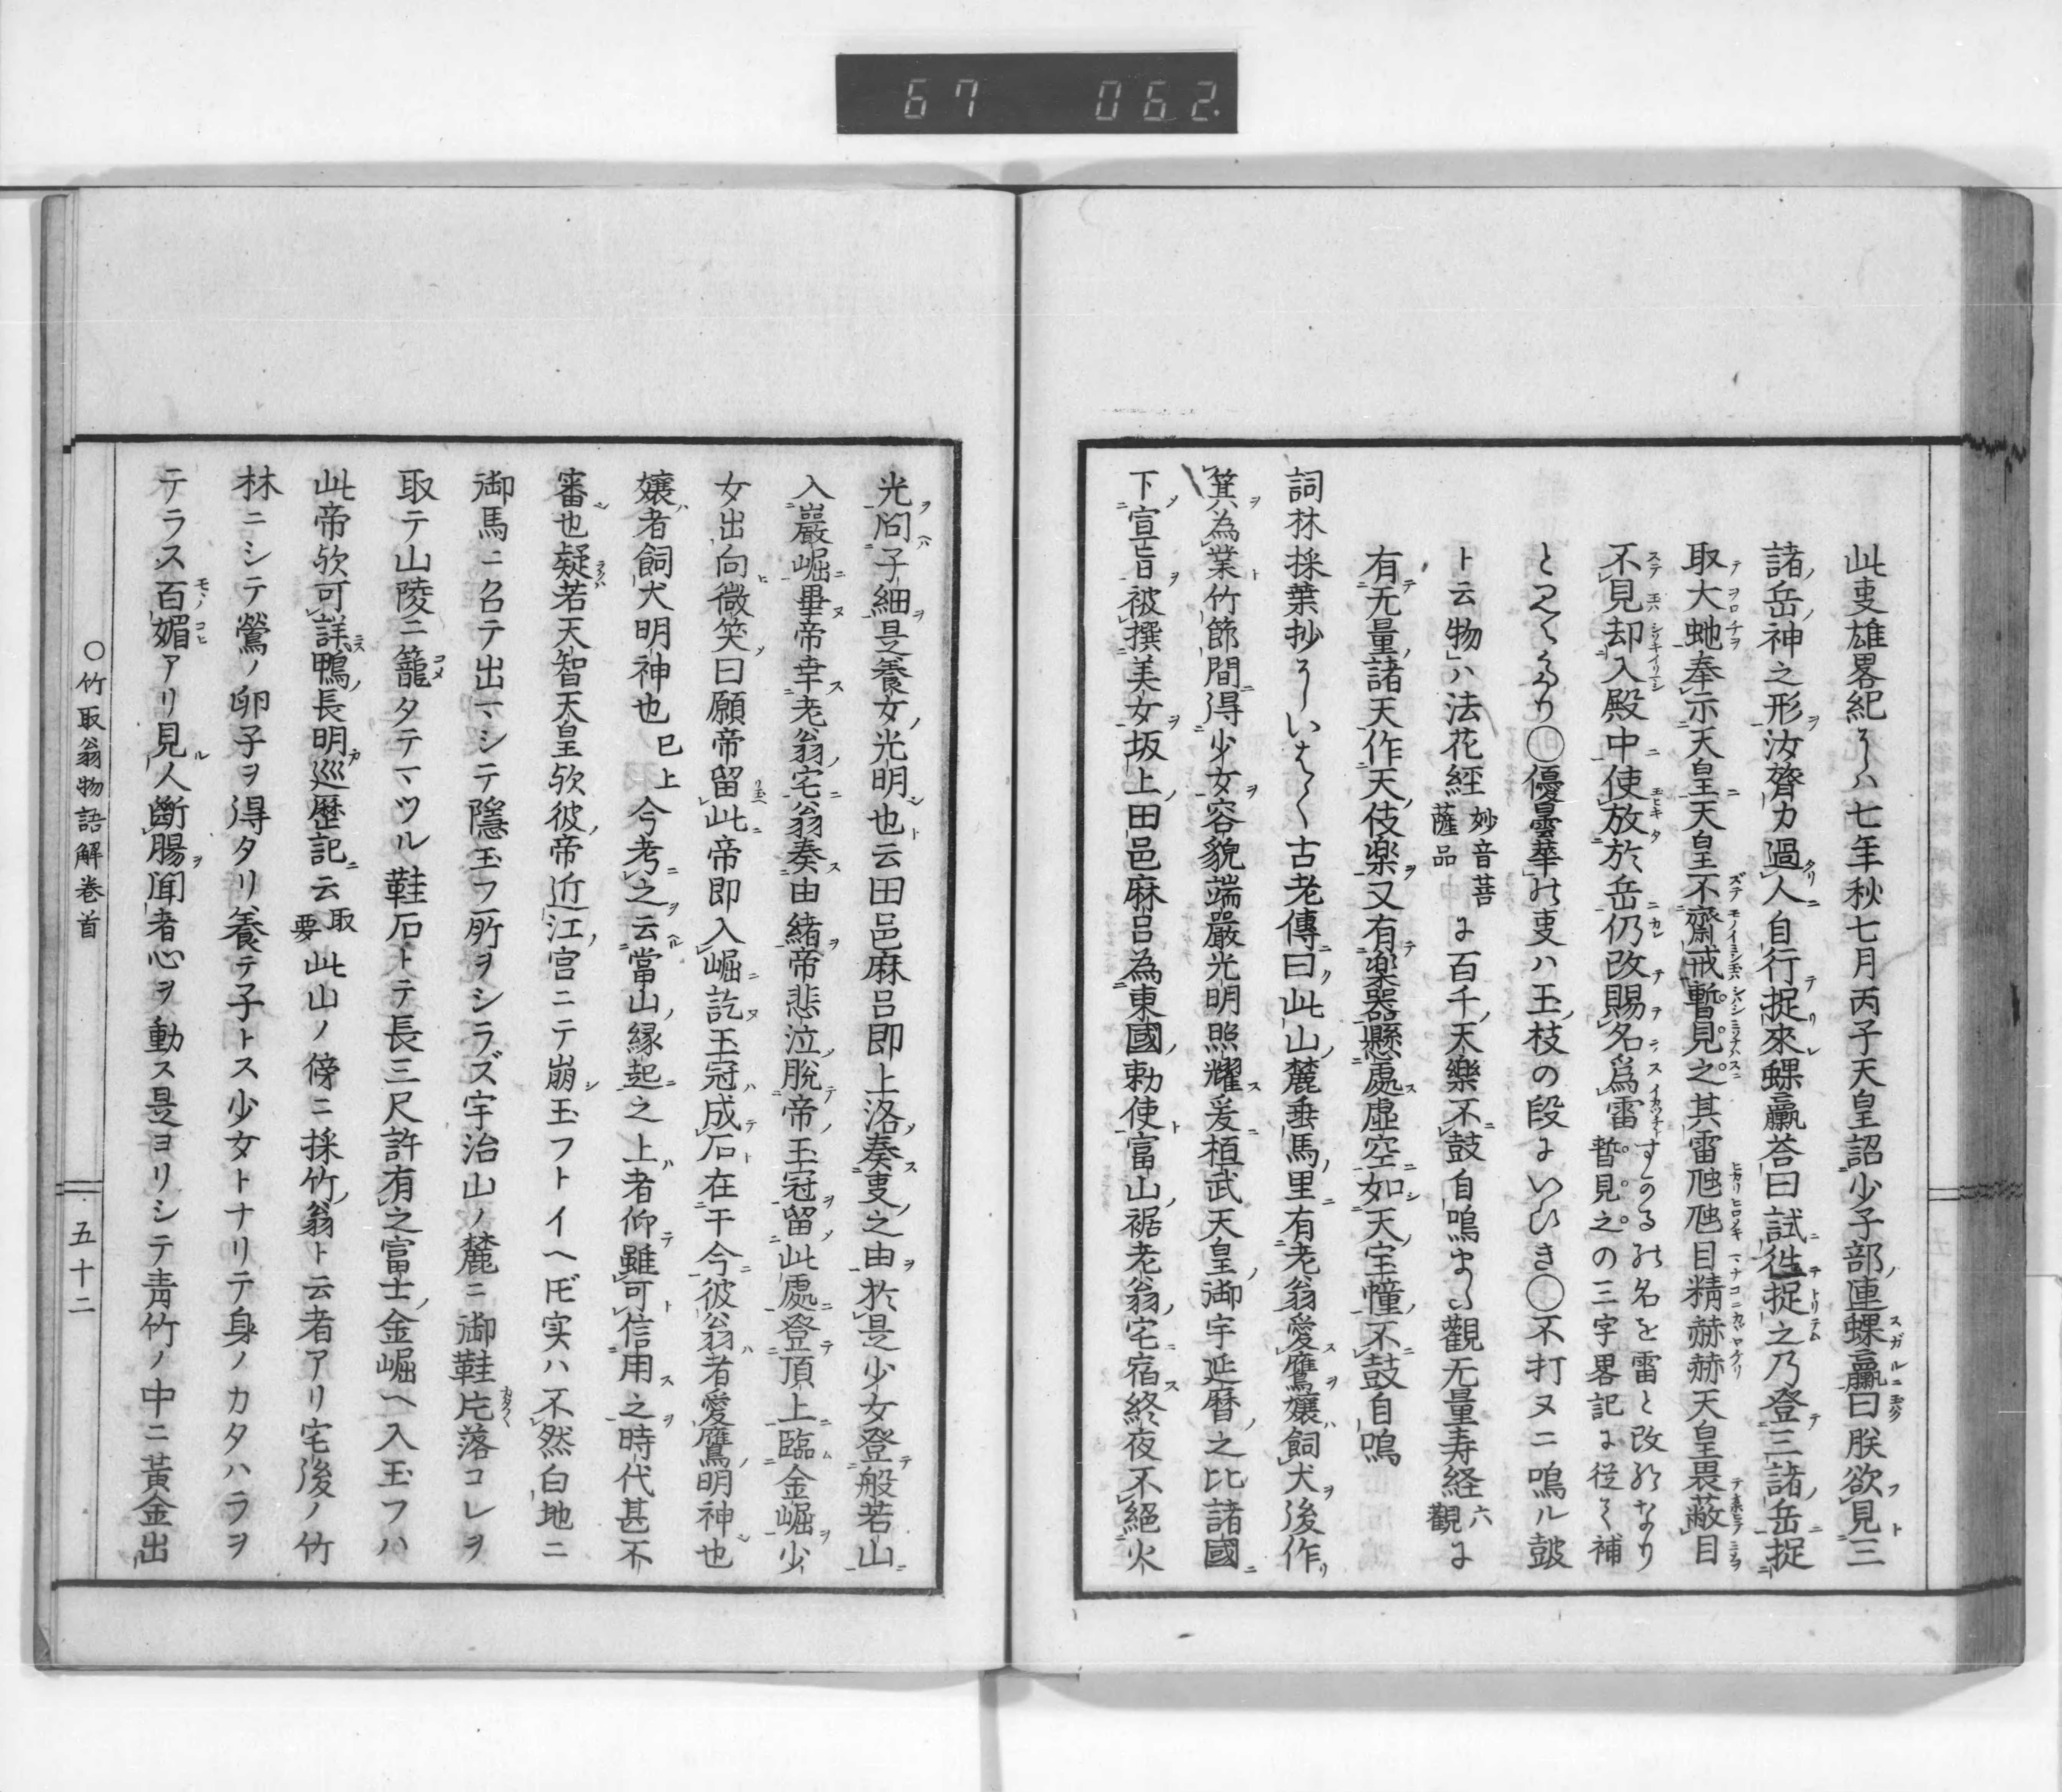 67 062
此叓雄畧紀ニハ七年秋七月丙子天皇詔少子部連蜾蠃曰朕欲見三
諸岳神之形汝膂力過人自行捉來蜾蠃荅曰試徃捉之乃登三諸岳捉
取大虵奉示天皇天皇不齋戒暫見之其雷虺虺目精赫赫天皇畏蔽目
不見却入殿中使放於岳仍改賜名爲雷
との三字畧記に従て補
〇優曇華の叓ハ玉枝の段にいひき〇不打ヌニ鳴ル皷
ト云物ハ法花經妙音菩薩品に百千天樂不鼓自鳴観无量寿経六観に
有无量諸天作天伎楽又有楽器懸處虚空如天宝幢不鼓自鳴
詞林採葉抄にいはく古老傳曰此山麓乗馬里有老翁愛鷹嬢飼犬後作
箕為業竹節間得少女容貌端嚴光明照耀爰桓武天皇御宇延暦之比諸國
下宣旨被撰美女坂上田邑麻呂為東國勅使富山裾老翁宅宿終夜不絕火
光問子細是養女光明也云田邑麻呂即上洛奏叓之由於是少女登般若山
入巖崛畢帝幸老翁宅翁奏由緒帝悲泣脫帝玉冠留此處登頂上臨金崛少
女出向微笑曰願帝留此帝即入崛訖玉冠成石在于今彼翁者愛鷹明神也
嬢者飼犬明神也已上今考之云當山縁起之上者仰雖可信用之時代甚不
審也疑若天智天皇欤彼帝近江宮ニテ崩玉フトイヘ𪜈実ハ不然白地ニ
御馬ニ召テ出マシテ隱玉フ所ヲシラズ宇治山ノ麓ニ御鞋片落コレヲ
取テ山陵ニ籠タテマツル鞋石トテ長三尺許有之富士金崛ヘ入玉フハ
此帝欤可詳鴨長明巡歴記云取要此山ノ傍ニ採竹翁ト云者アリ宅後ノ竹
林ニシテ鶯ノ卵子ヲ得タリ養テ子トス少女トナリテ身ノカタハラヲ
テラス百媚アリ見人斷腸聞者心ヲ動ス是ヨリシテ靑竹ノ中ニ黃金出
〇竹取翁物語解卷首
五十二